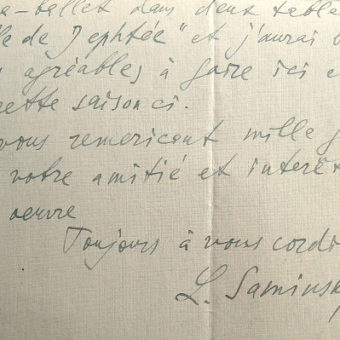 -ballet dans deux table
le de Jephtée" et j'aurai
agréables à faire ici e
cette saison ci.
vous remericant mille
votre amitié et interêt
oeuvre
Toujours à vous cordi
L. Saminsk